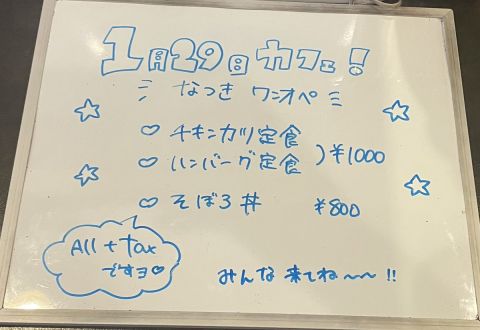 1月29日カフェ!
なつき ワンオペ
♡ チキンカツ定食
♡ ハンバーグ定食 ) ¥1000
♡ そぼろ丼 ¥800
All + tax
ですヨ♡
みんな来てね〜〜!!